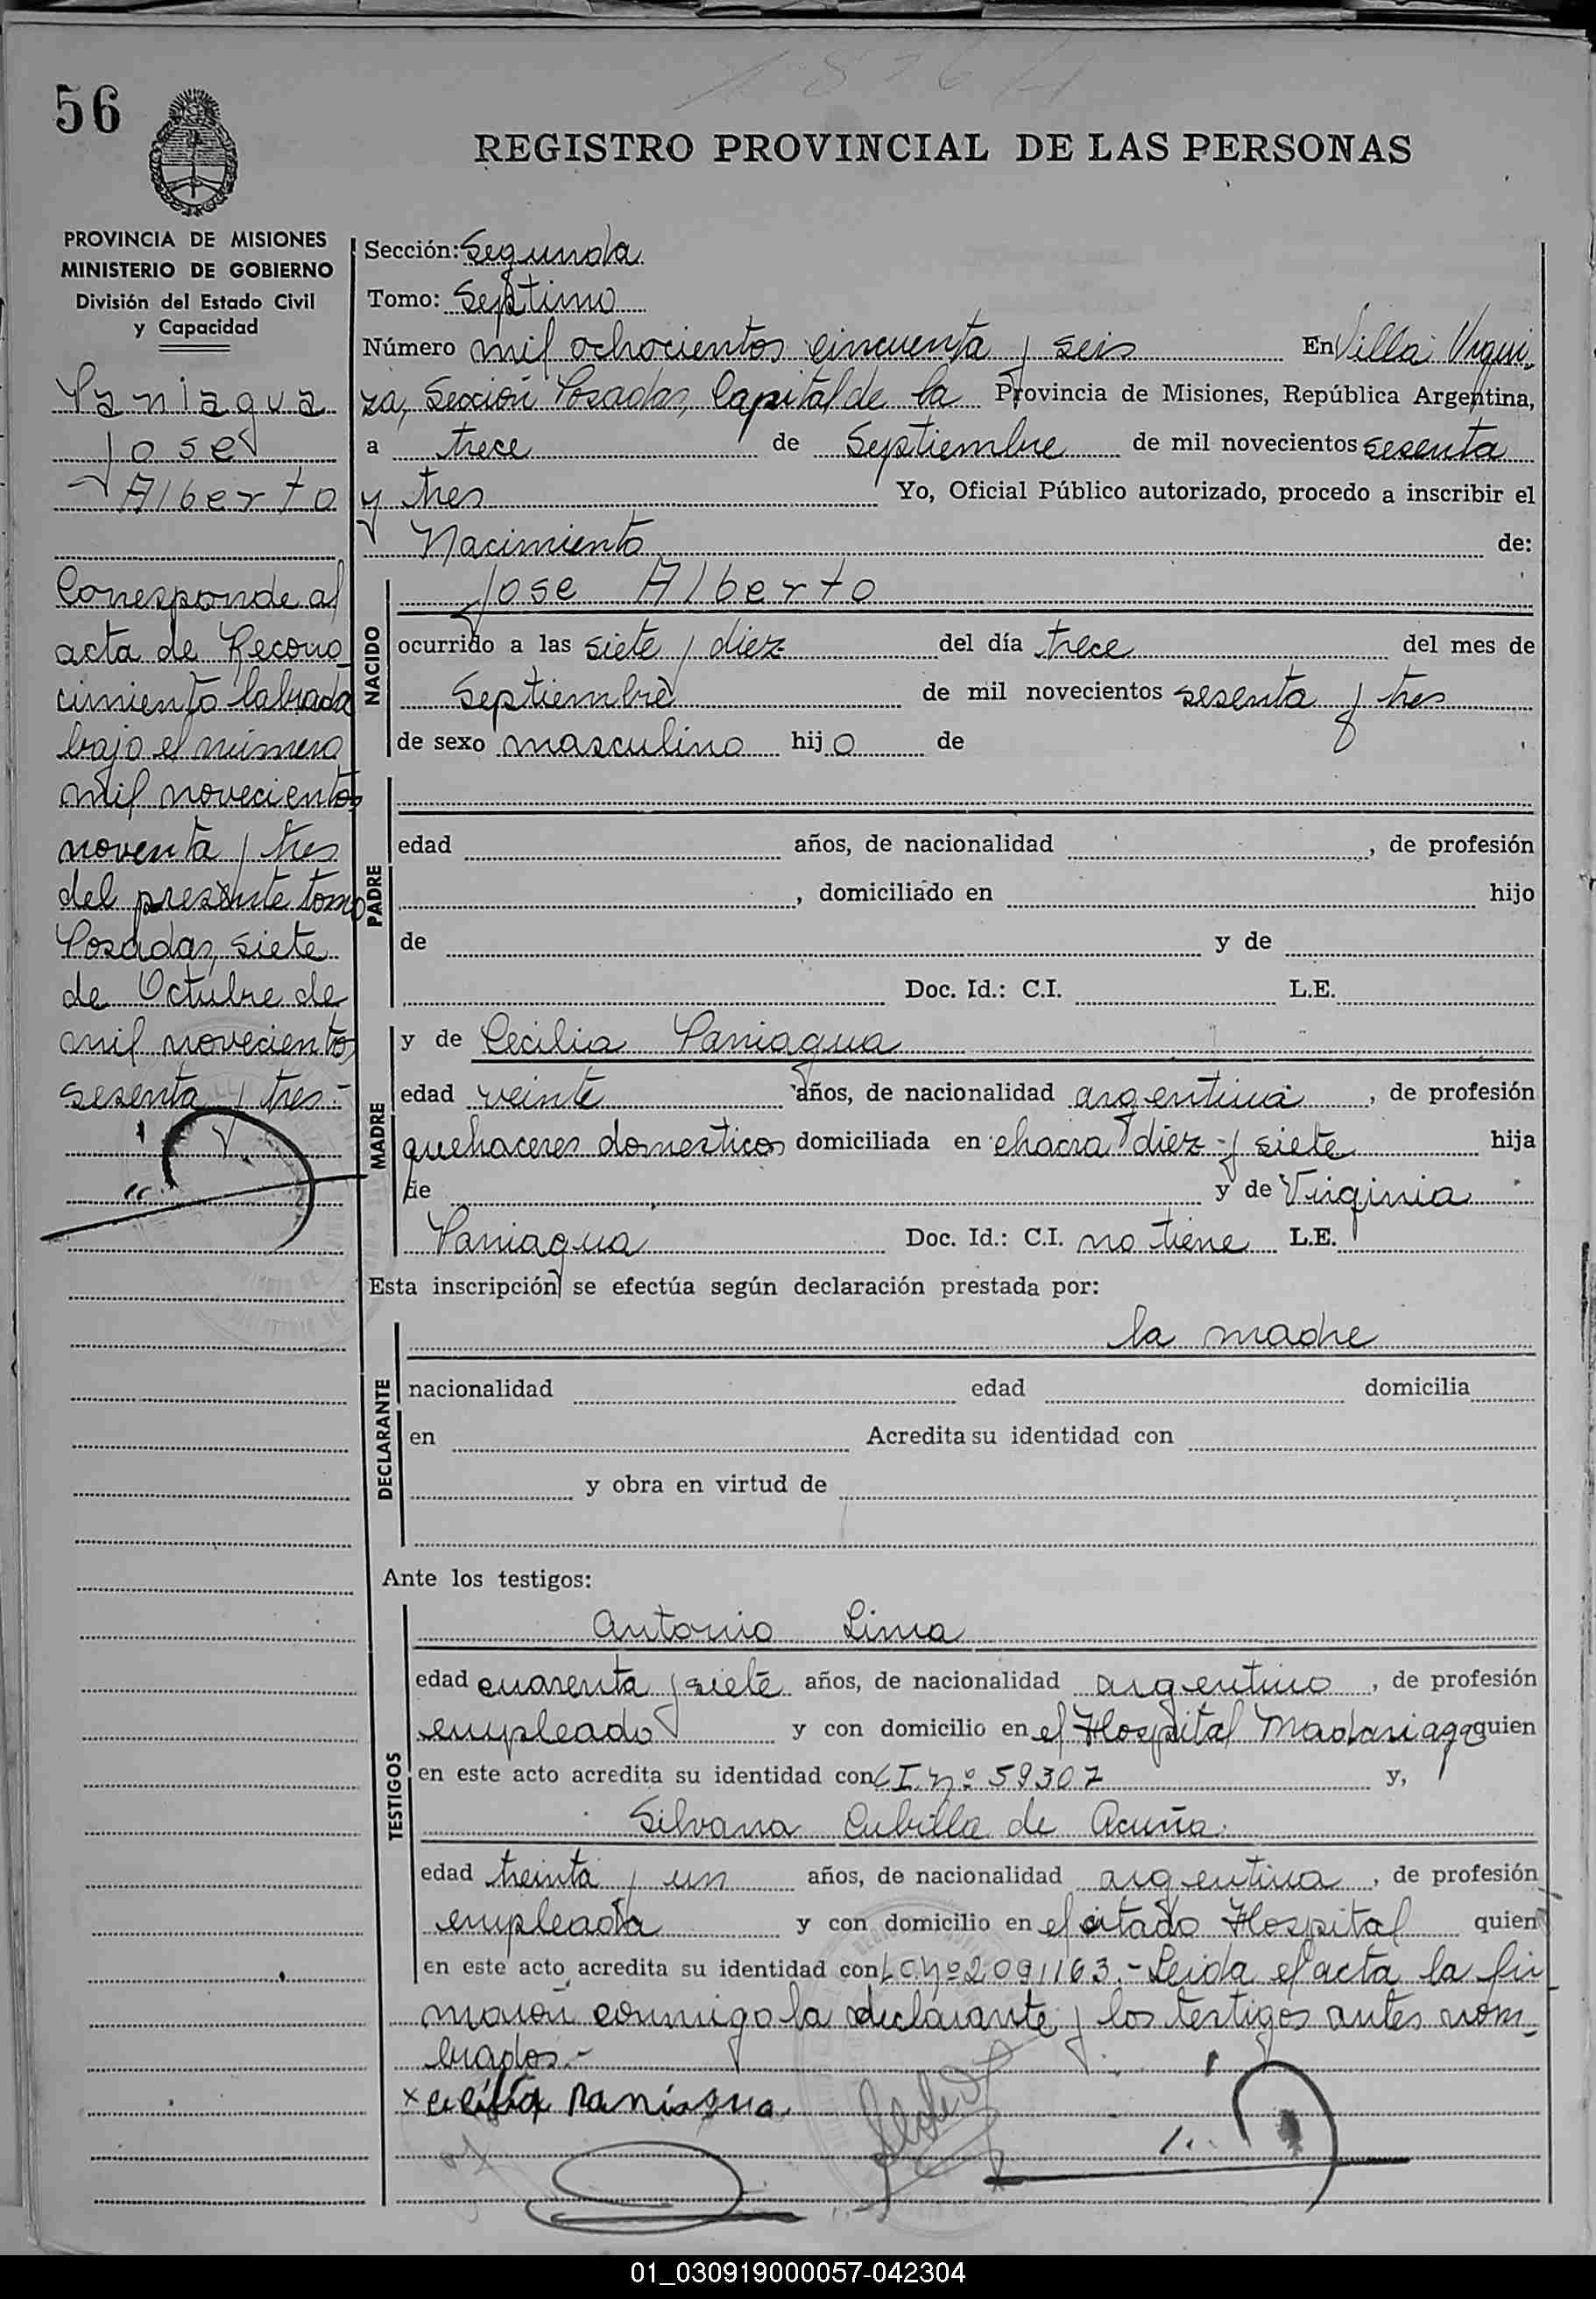 56
REGISTRO PROVINCIAL DE LAS PERSONAS
PROVINCIA DE MISIONES
MINISTERIO DE GOBIERNO
División del Estado Civil
y Capacidad
Paniagua
Jose
Alberto
Corresponde al
acta de Recono
cimiento labrada
bajo el número
mil novecientos
noventa y tres
del presente tomo
Posadas, siete
de Octubre de
mil novecientos
sesenta y tres.-
Sección: Segunda
Tomo: Septimo
Número mil ochocientos cincuenta y seis En Villa Urqui
za, Sección Posadas, Capital de la Provincia de Misiones, República Argentina,
a trece de Septiembre de mil novecientos sesenta
y tres Yo, Oficial Público autorizado, procedo a inscribir el
Nacimiento de:
NACIDO
Jose Alberto
ocurrido a las siete y diez del día trece del mes de
Septiembre de mil novecientos sesenta y tres
de sexo masculino hijo de
PADRE
edad años, de nacionalidad , de profesión
, domiciliado en hijo
de y de
Doc. Id.: C.I. L.E.
MADRE
y de Cecilia Paniagua
edad veinte años, de nacionalidad argentina , de profesión
quehaceres domesticos domiciliada en chacra diez y siete hija
de y de Virginia
Paniagua Doc. Id.: C.I. no tiene L.E.
Esta inscripción se efectúa según declaración prestada por:
DECLARANTE
la madre
nacionalidad edad domicilia
en Acredita su identidad con
y obra en virtud de
Ante los testigos:
TESTIGOS
Antonio Lima
edad cuarenta y siete años, de nacionalidad argentino , de profesión
empleado y con domicilio en el Hospital Madariaga quien
en este acto acredita su identidad con C I. nº 59307 y,
Silvana Cubilla de Acuña
edad treinta y un años, de nacionalidad argentina , de profesión
empleada y con domicilio en el citado Hospital quien
en este acto acredita su identidad con L.C. nº 2.091163.- Leida el acta la fir
maron conmigo la declarante y los testigos antes nom
brados.-
x cecilia Paniagua
01_030919000057-042304